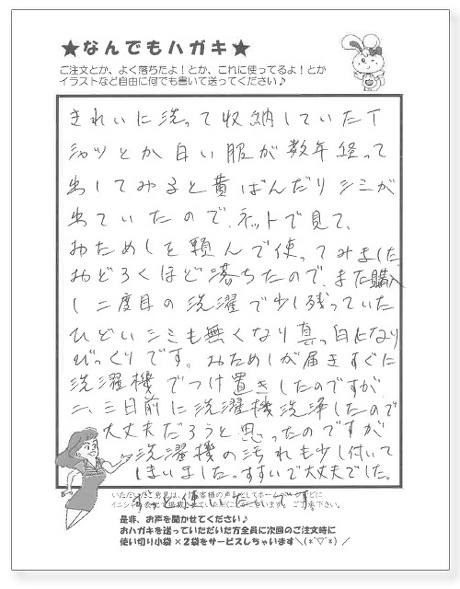 ★なんでもハガキ★
ご注文とか、よく落ちたよ！とか、これに使ってるよ！とか
イラストなど自由に何でも書いて送ってください♪
きれいに洗って収納していたT
シャツとか白い服が数年経って
出してみると黄ばんだりシミが
出ていたので、ネットで見て、
おためしを頼んで使ってみました
おどろくほど落ちたので、また購入
し二度目の洗濯で少し残っていた
ひどいシミも無くなり真っ白になり
びっくりです。おためしが届きすぐに
洗濯機でつけ置きしたのですが
二、三日前に洗濯機洗浄したので
大丈夫だろうと思ったのですが
洗濯機の汚れも少し付いて
しまいました。すすいで大丈夫でした。
是非、お声を聞かせてください♪
おハガキを送っていただいた方全員に次回のご注文時に
使い切り小袋×2袋をサービスしちゃいます＼(*^▽^*)／